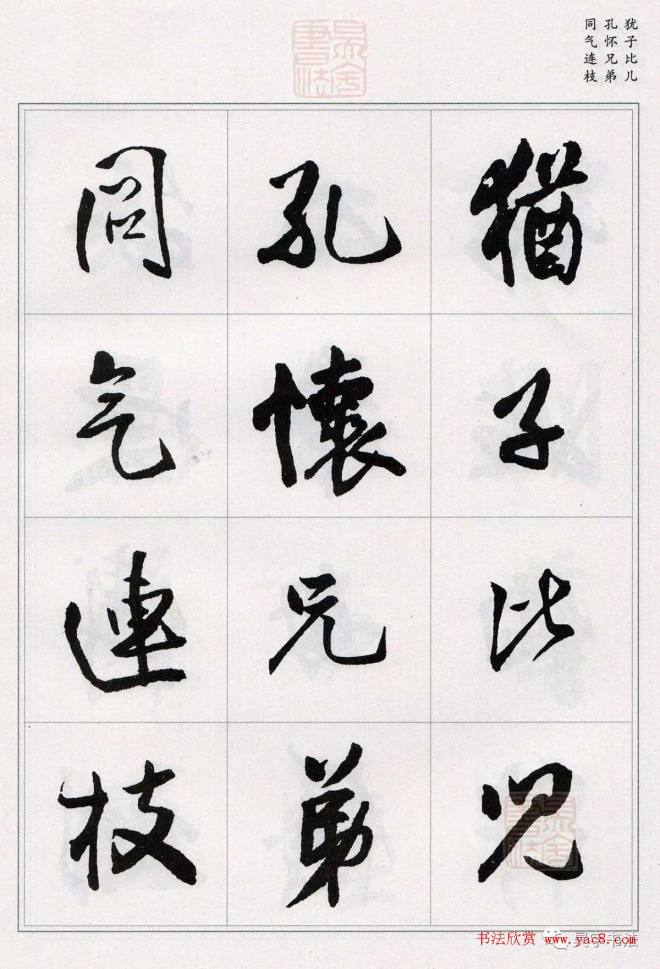 犹子比儿
孔怀兄弟
同气连枝
猶子比兒
孔懷兄弟
同气連枝
书法欣赏 www.yac8.com